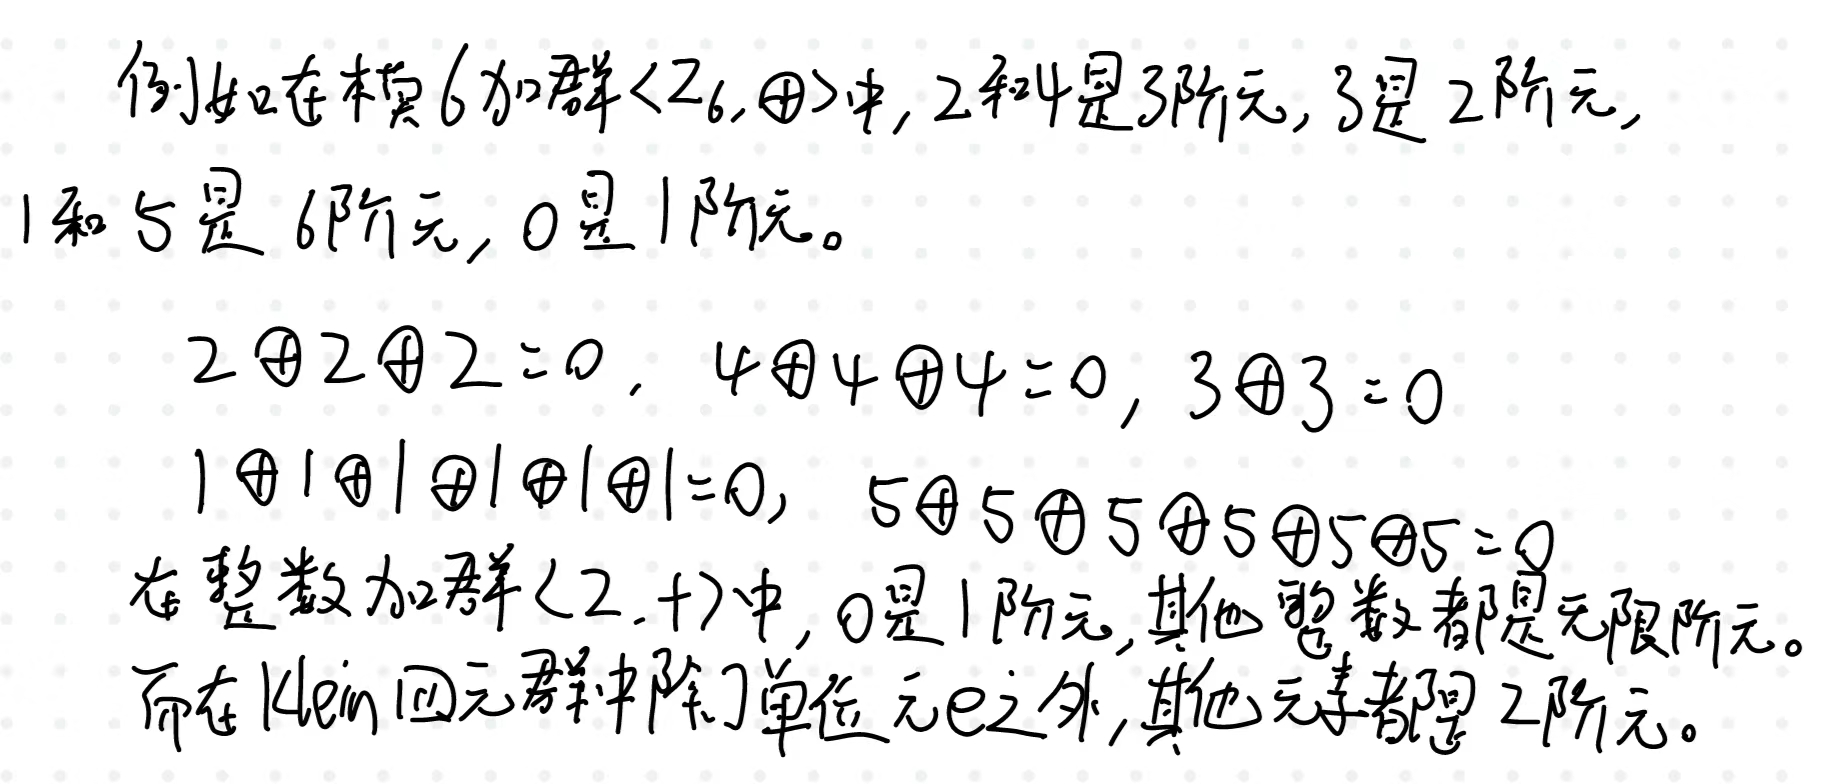 例如在模6加群<Z₆,⊕>中,2和4是3阶元,3是2阶元,
1和5是6阶元,0是1阶元。
2⊕2⊕2=0, 4⊕4⊕4=0, 3⊕3=0
1⊕1⊕1⊕1⊕1⊕1=0, 5⊕5⊕5⊕5⊕5⊕5=0
在整数加群<Z,+>中,0是1阶元,其他整数都是无限阶元。
而在Klein四元群中除了单位元e之外,其他元素都是2阶元。